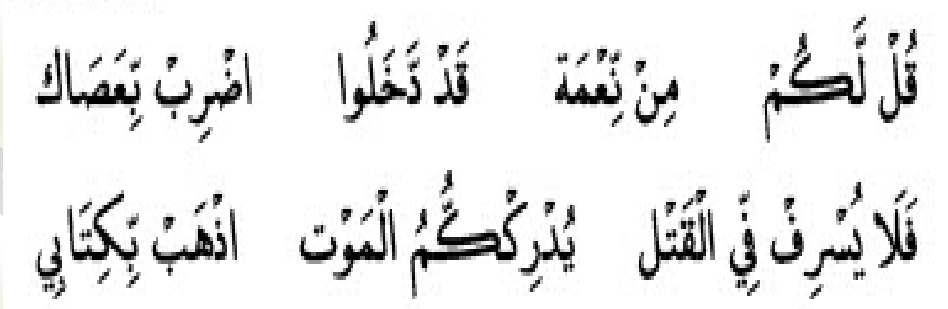 قُلْ لَّكُمْ مِنْ نِّعْمَة قَدْ دَّخَلُوا اضْرِبْ بِّعَصَاكَ
فَلَا يُسْرِفْ فِّي الْقَتْل يُدْرِكْكُّمُ الْمَوْت اذْهَبْ بِّكِتَابِي